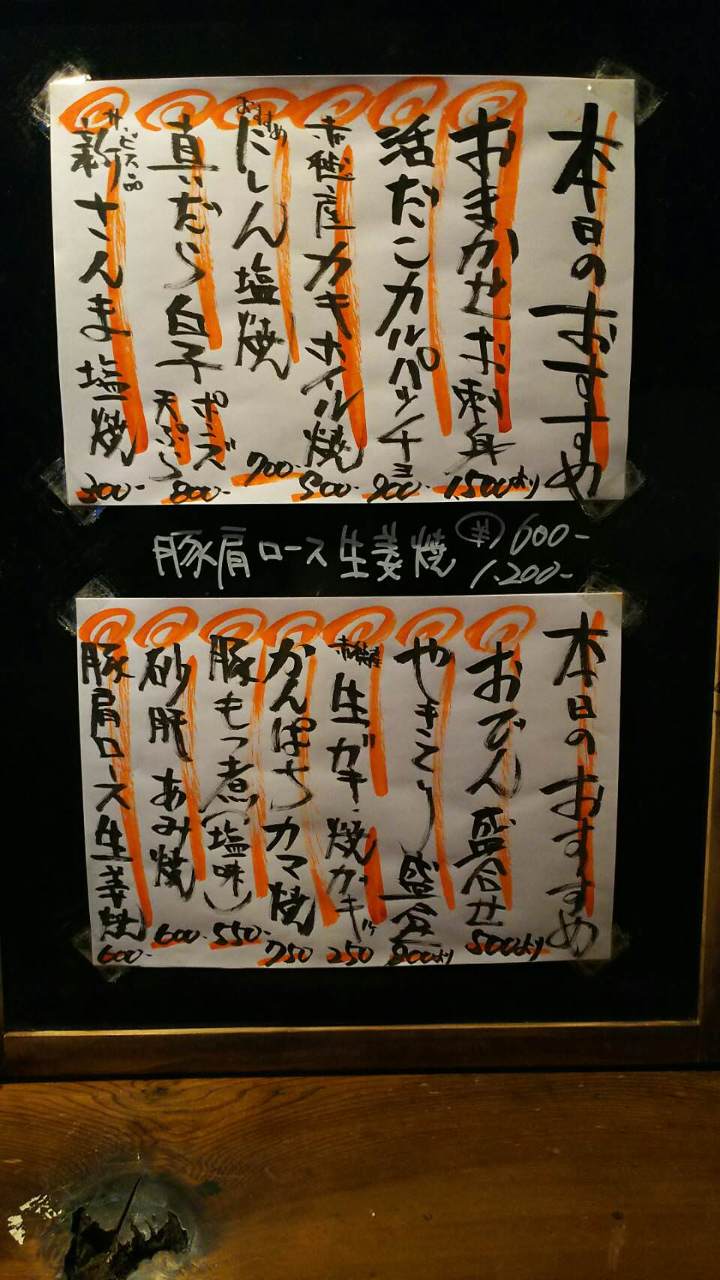 本日のおすすめ
おまかせお刺身 1500より
活だこカルパッチョ 900-
赤穂産カキホイル焼 500-
おすすめ にしん塩焼 700-
真だら白子 ポンズ 天ぷら 800-
サービス品 新さんま塩焼 300-
豚肩ロース生姜焼 半 600-
1.200-
本日のおすすめ
おでん盛合せ 500より
やきとり盛合 800より
赤穂産 生ガキ・焼ガキ 1ケ 250
かんぱちカマ焼 750
豚もつ煮(塩味) 550-
砂肝あみ焼 600-
豚肩ロース生姜焼 600-